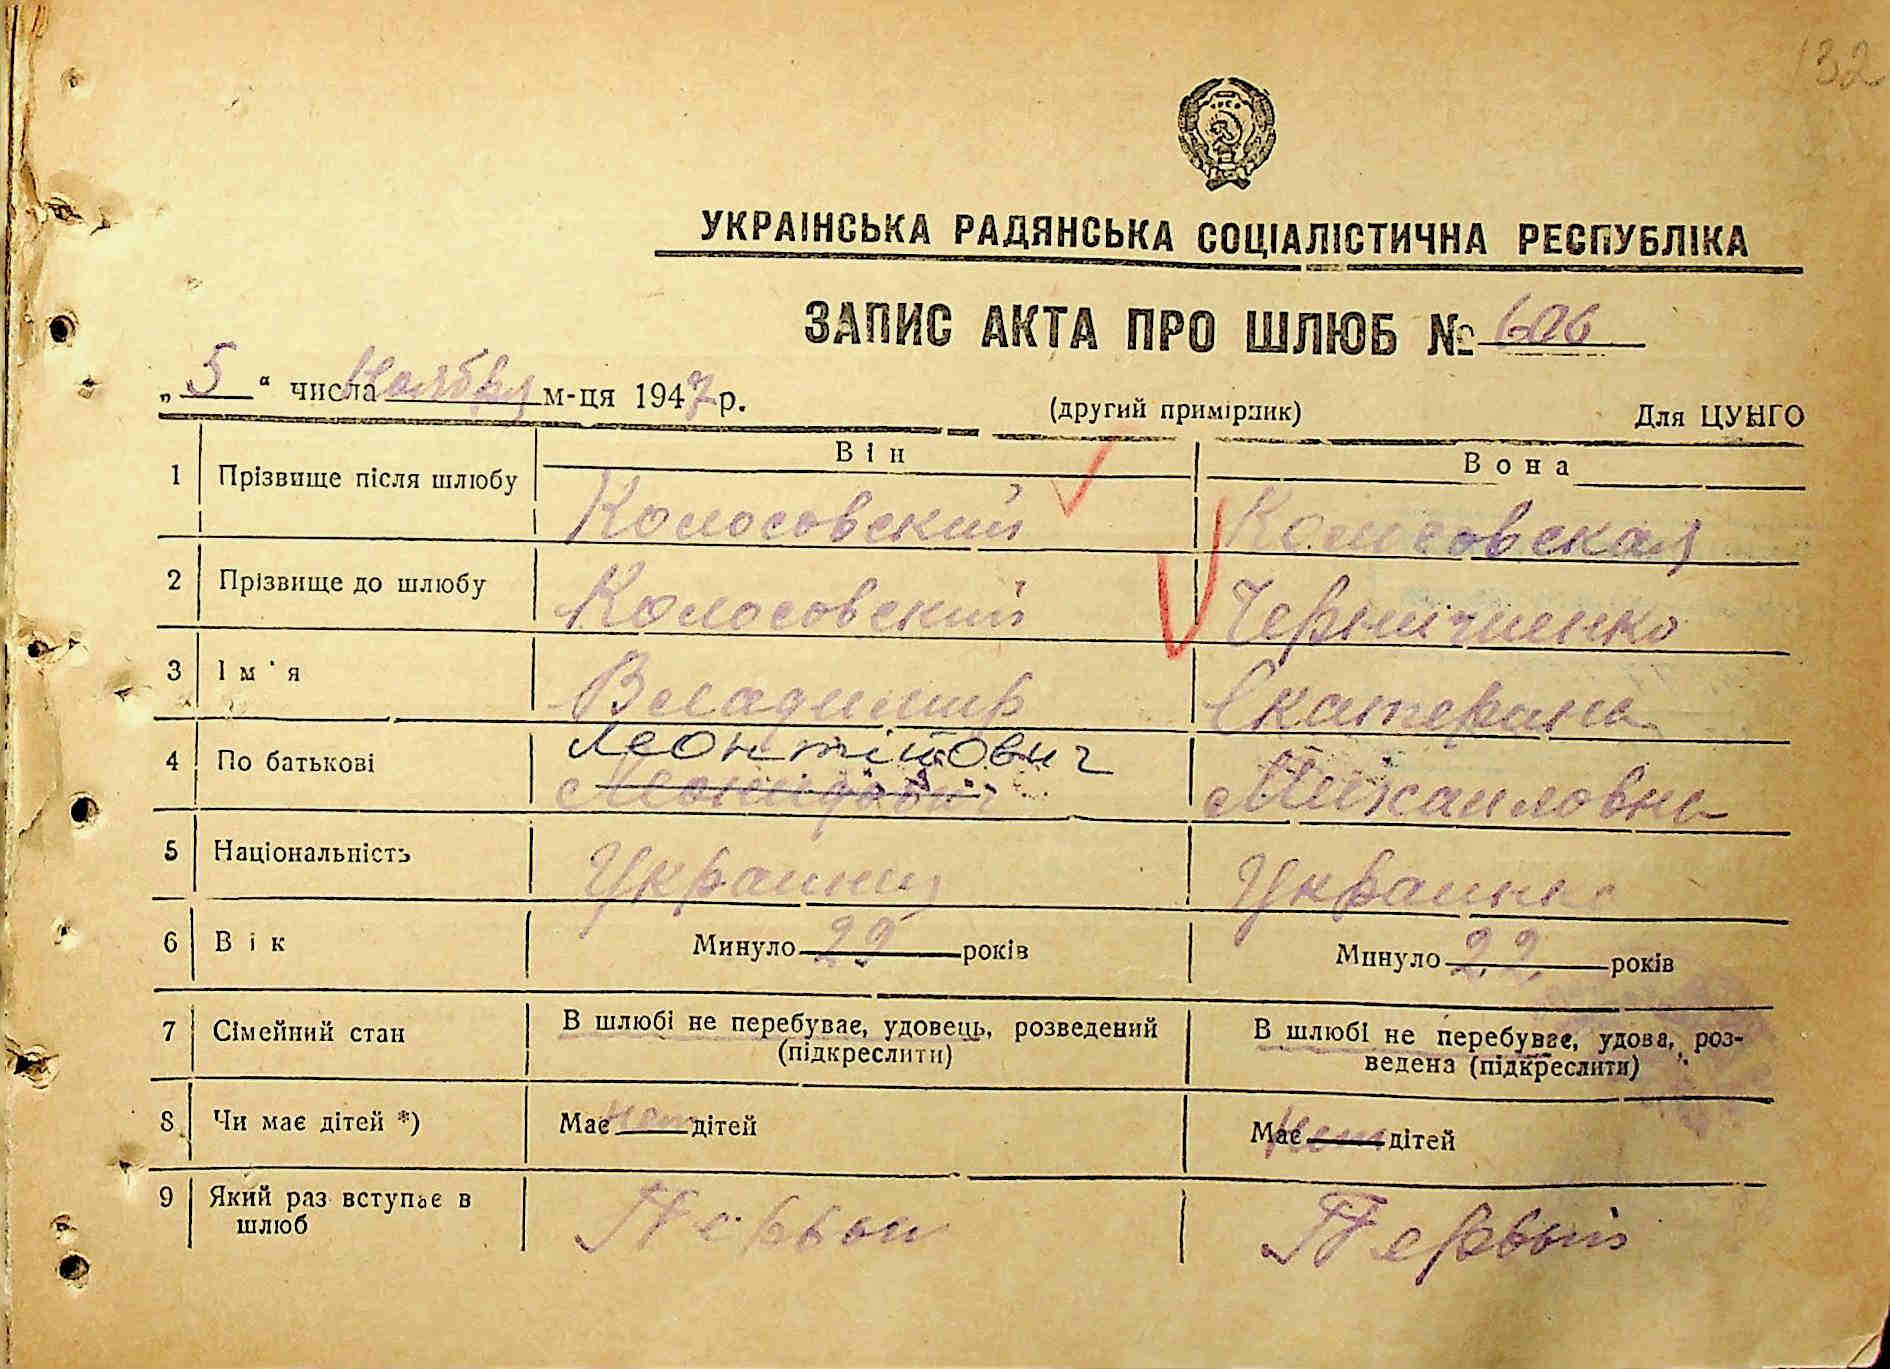 132
УКРАІНСЬКА РАДЯНСЬКА СОЦІАЛІСТИЧНА РЕСПУБЛІКА
ЗАПИС АКТА ПРО ШЛЮБ № 606
„ 5 “ числа Ноября м-ця 1947 р.
(другий примірник)
Для ЦУНГО
Він
Вона
1 Прізвище після шлюбу Колосовский Колосовская
2 Прізвище до шлюбу Колосовский
3 Ім'я Владимир Екатерина
4 По батькові Леонтійович Михайловна
Леонидович
5 Національність Украинец Украинка
6 Вік Минуло 22 років Минуло 22 років
7 Сімейний стан В шлюбі не перебуває, удовець, розведений (підкреслити) В шлюбі не перебуває, удова, роз-
ведена (підкреслити)
8 Чи має дітей *) Має нет дітей Має нет дітей
9 Який раз вступає в шлюб Первый Первый